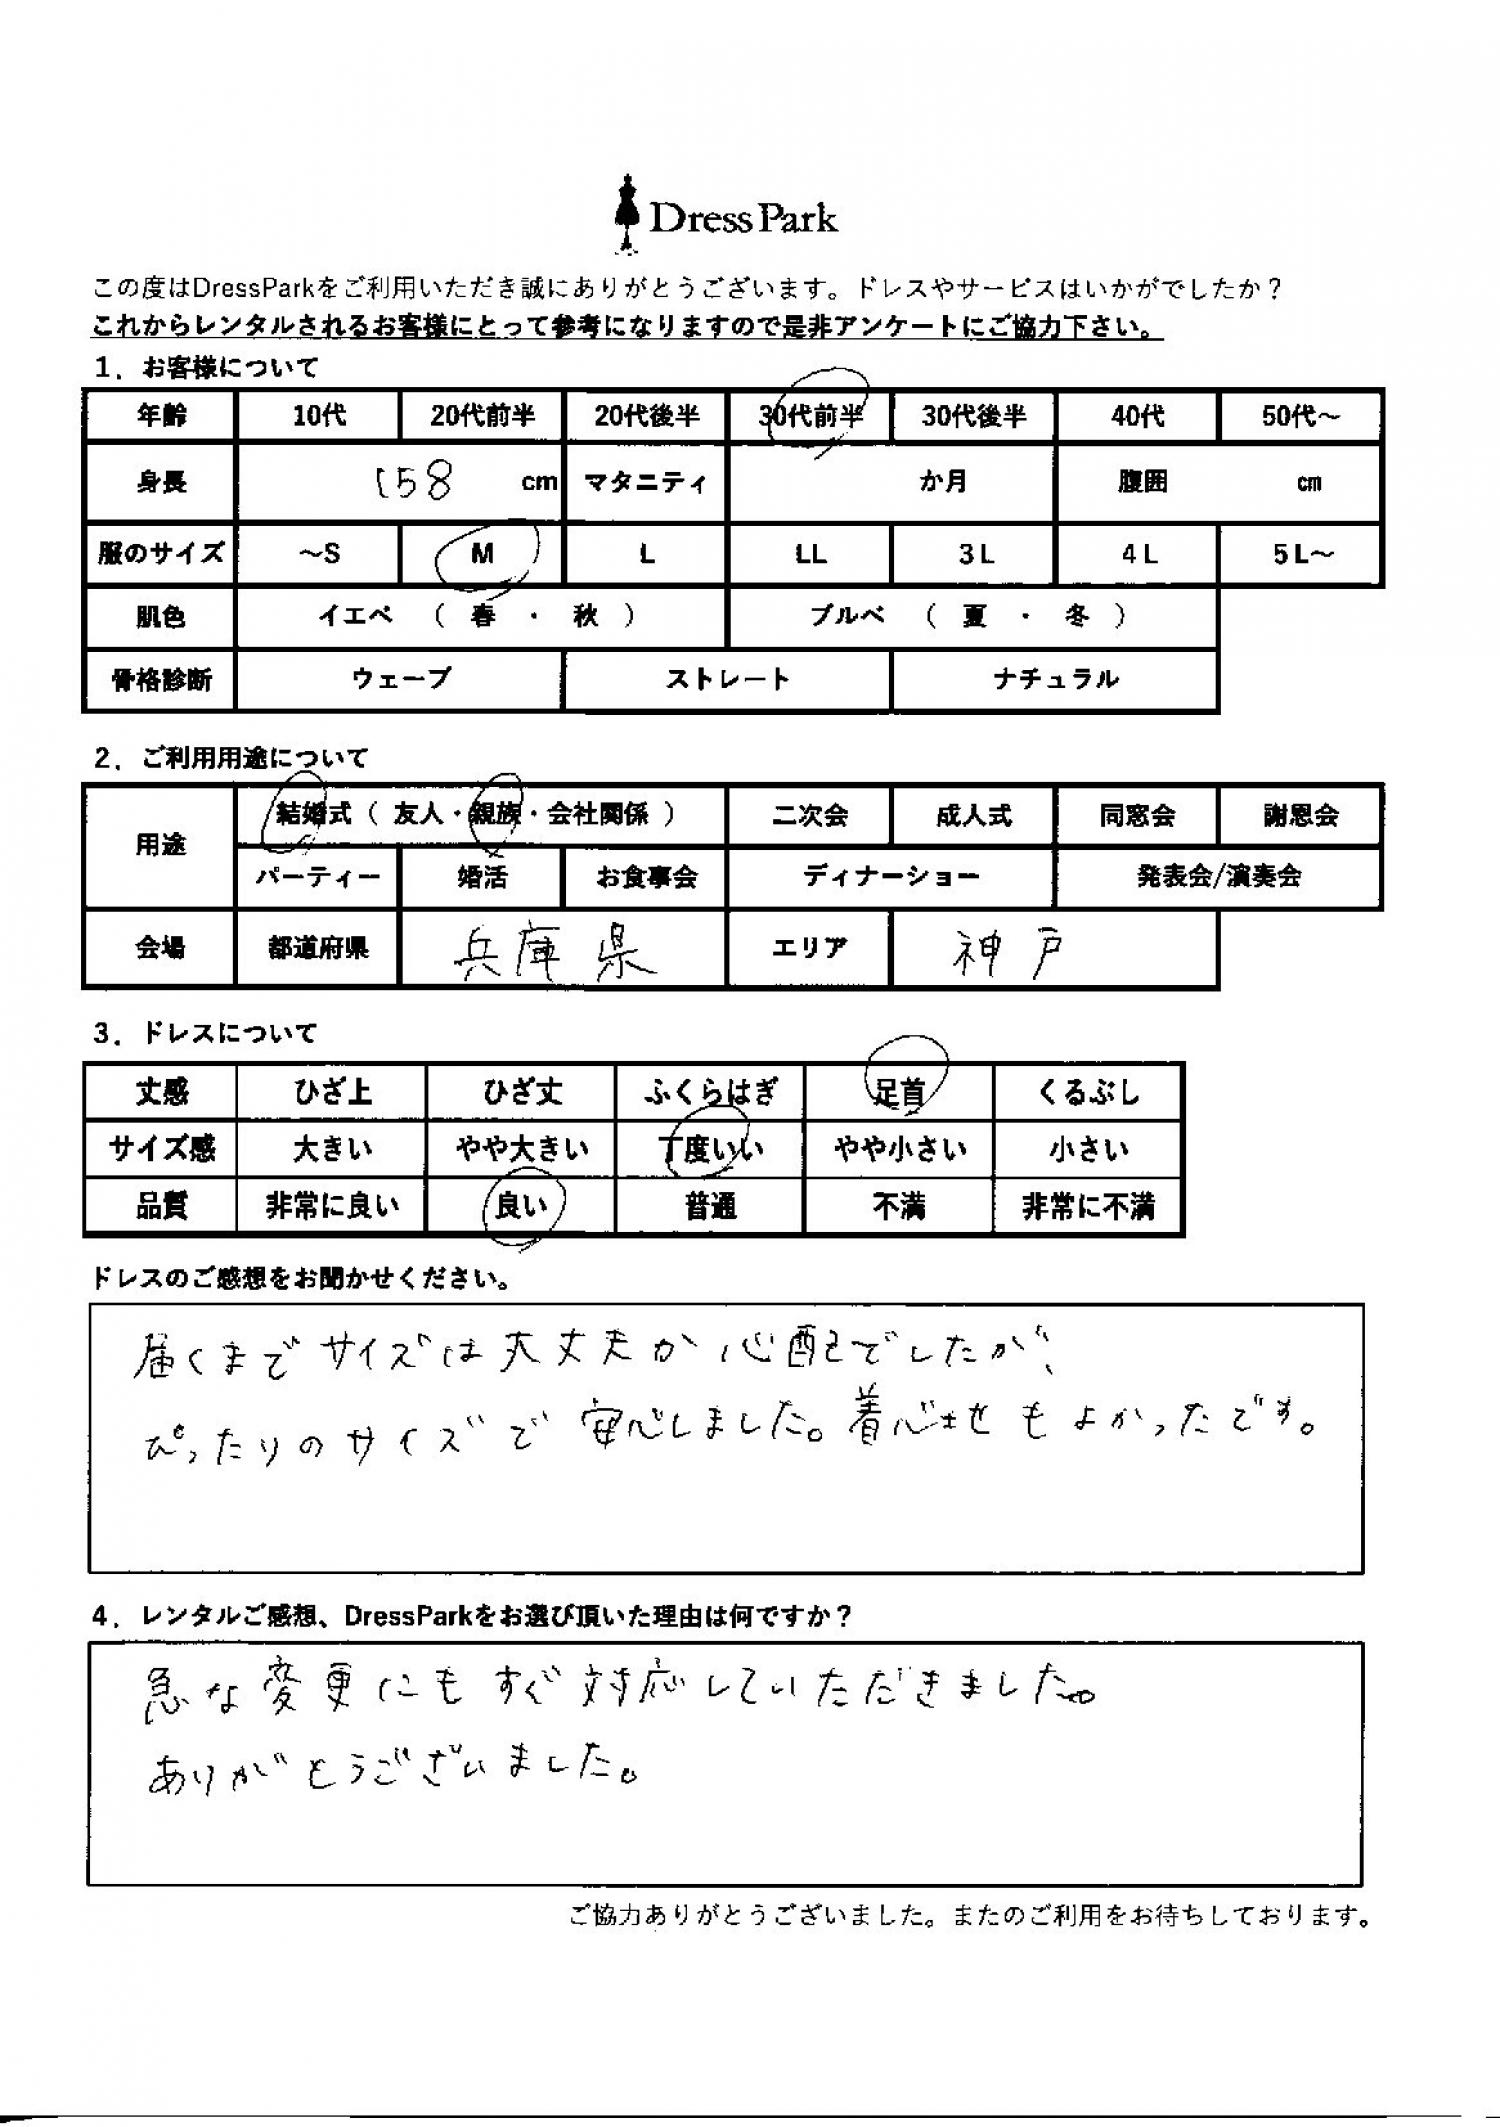 Dress Park
この度はDressParkをご利用いただき誠にありがとうございます。ドレスやサービスはいかがでしたか？
これからレンタルされるお客様にとって参考になりますので是非アンケートにご協力下さい。
1．お客様について
年齢 10代 20代前半 20代後半 30代前半 30代後半 40代 50代～
身長 158 cm マタニティ か月 腹囲 cm
服のサイズ ～S M L LL 3L 4L 5L～
肌色 イエベ （ 春 ・ 秋 ） ブルベ （ 夏 ・ 冬 ）
骨格診断 ウェーブ ストレート ナチュラル
2．ご利用用途について
用途 結婚式（ 友人・親族・会社関係 ） 二次会 成人式 同窓会 謝恩会
パーティー 婚活 お食事会 ディナーショー 発表会/演奏会
会場 都道府県 兵庫県 エリア 神戸
3．ドレスについて
丈感 ひざ上 ひざ丈 ふくらはぎ 足首 くるぶし
サイズ感 大きい やや大きい 丁度いい やや小さい 小さい
品質 非常に良い 良い 普通 不満 非常に不満
ドレスのご感想をお聞かせください。
届くまでサイズは大丈夫か心配でしたが、
ぴったりのサイズで安心しました。着心地もよかったです。
4．レンタルご感想、DressParkをお選び頂いた理由は何ですか？
急な変更にもすぐ対応していただきました。
ありがとうございました。
ご協力ありがとうございました。またのご利用をお待ちしております。